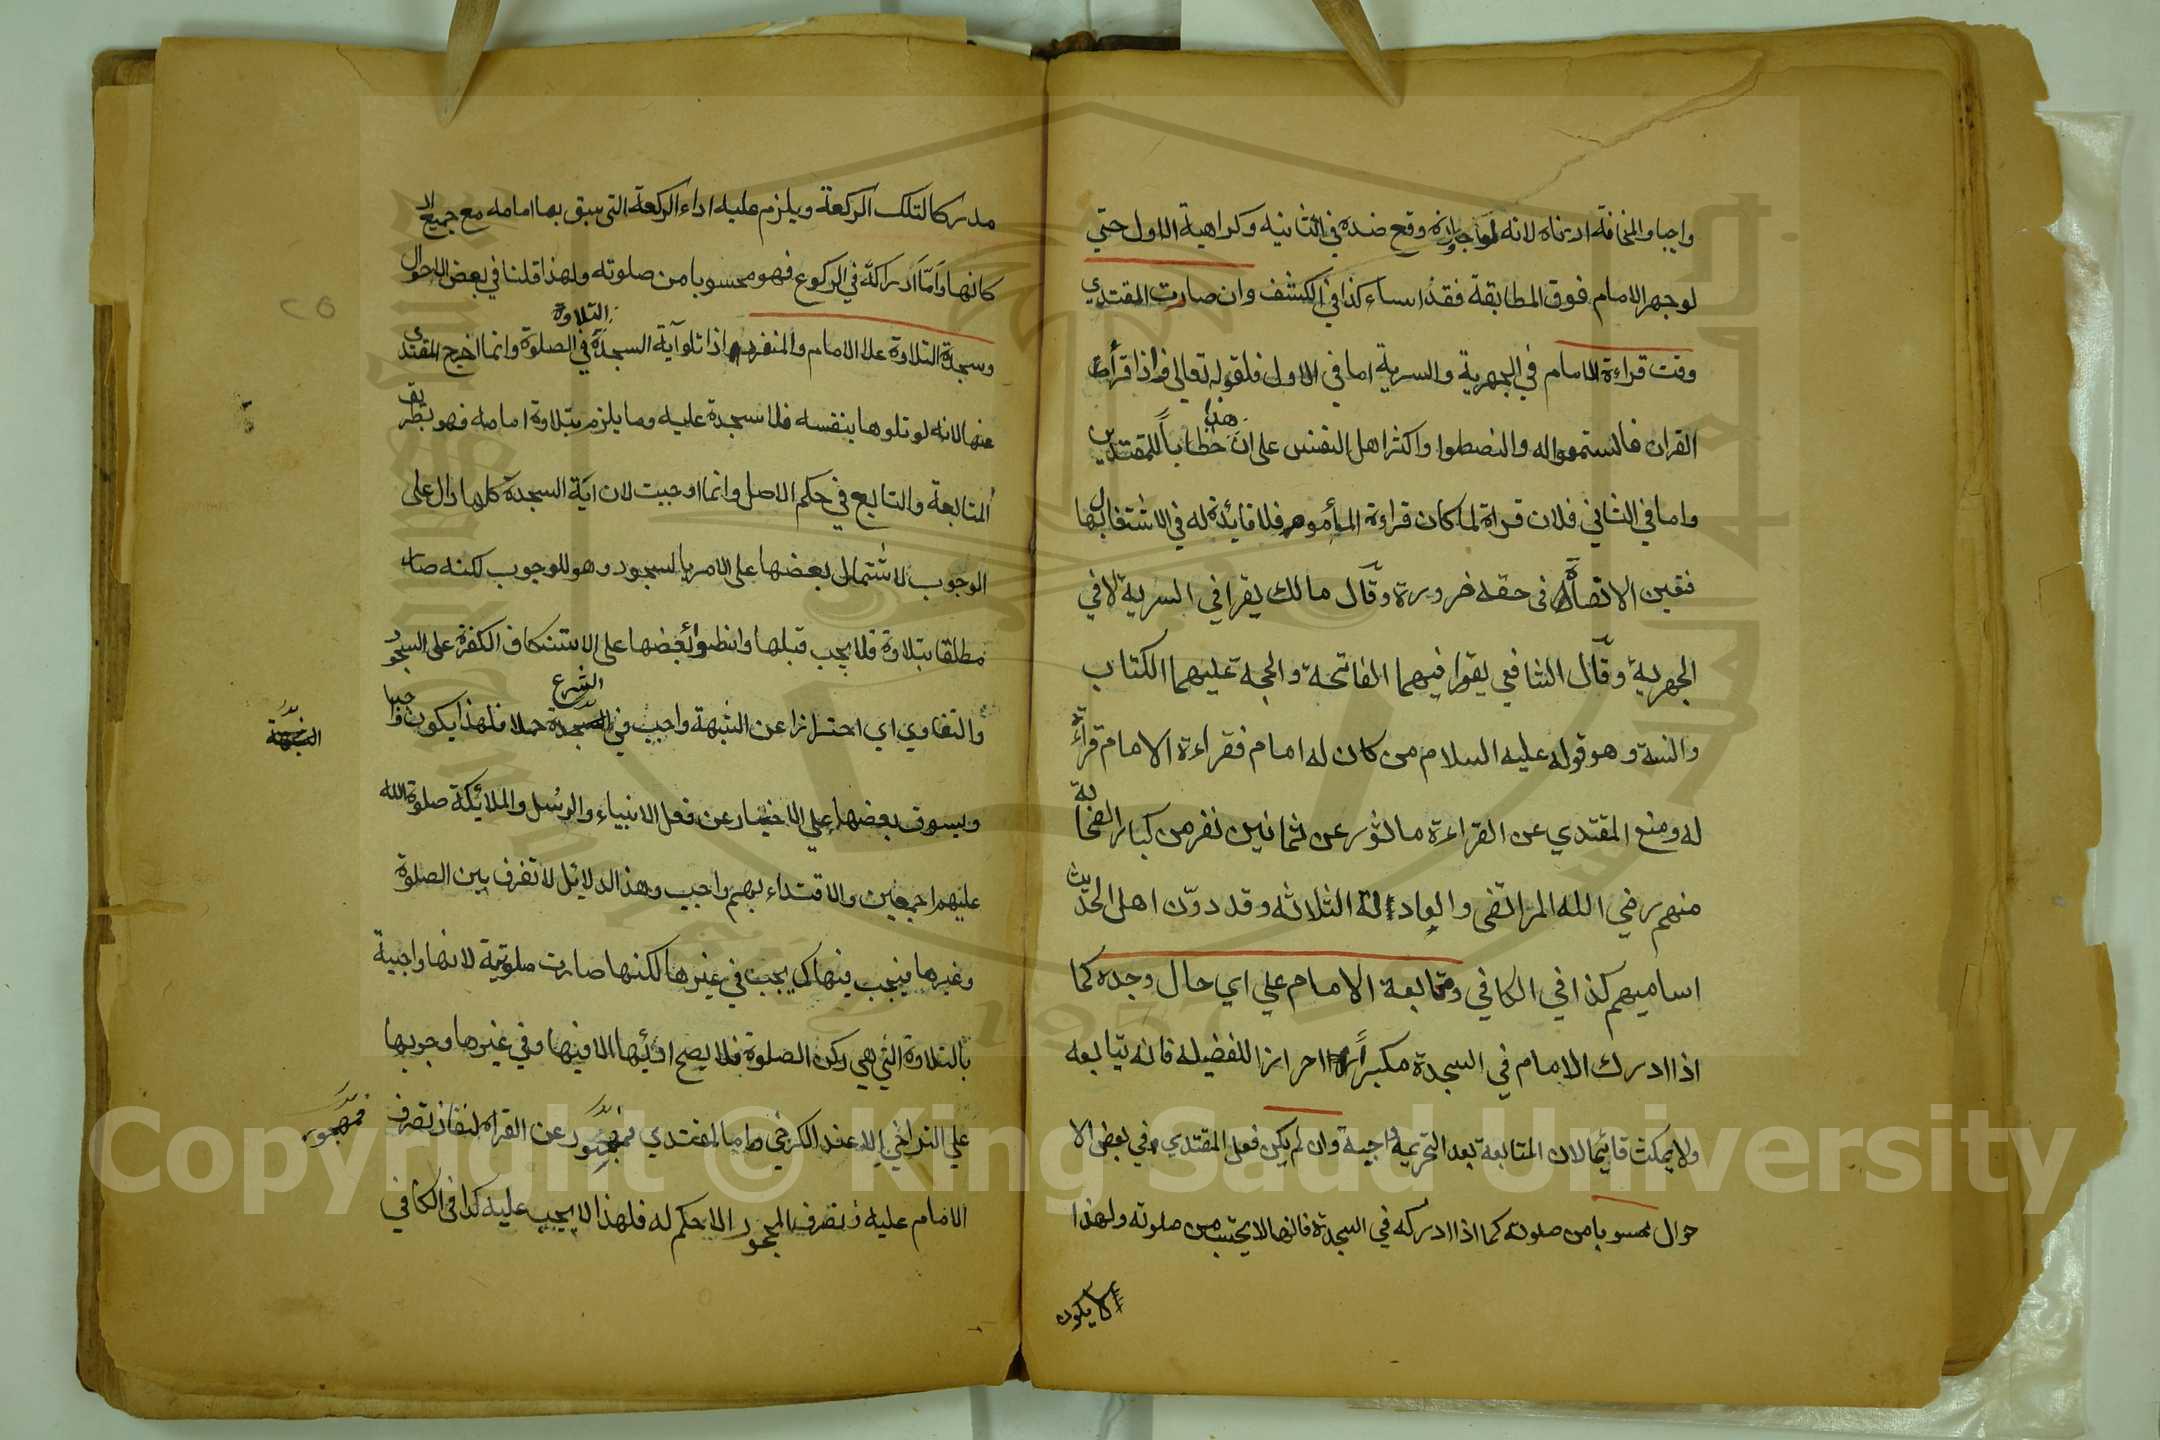 واجبا والمخافة ادناه لانه لو وقع ضده في الثانيه وكراهية الاول حتي
لوجهر الامام فوق المطابقة فقد اساء كذا في الكشف وان صارت المقتدي
وقت قراءة الامام في الجهرية والسرية اما في الاول فلقوله تعالى فاذا قرأ
القران فاستمعوا له وانصطوا واكثر اهل التفسير على ان هذا خطابا للمقتدين
واما في الثاني فلان قراة لما كان قراوة المأموم فلا فائدة له في الاشتغال بها
فتعين الانصاة في حقه ضرورة وقال مالك يقرا في السرية لا في
الجهرية وقال الشافعي يقرا فيهما الفاتحة والحجة عليهما الكتاب
والسنة وهو قوله عليه السلام من كان له امام فقراءة الامام قرأة
له ومنع المقتدي عن القراءة ماثور عن ثمانين نفر من كبار الصحابة
منهم رضي الله المرتضى والعبادلة الثلاثه وقد دون اهل الحديث
اساميهم كذا في الكافي ومتابعة الامام علي اي حال وجده كما
اذا ادرك الامام في السجدة مكبرا احرازا للفضيله فانه يتابعه
ولا يمكث قائما لان المتابعة بعد التحريمة واجبة وان لم يكن فعل المقتدي في بعض الا
حوال محسوبا من صلوته كما اذا ادركه في السجدة فانها لا يحتسب من صلوته ولهذا
لا يكون
مدركا لتلك الركعة ويلزم عليه اداء الركعة التي سبق بها امامه مع جميع الا
كانها واما ادراكه في الركوع فهو محسوبا من صلوته ولهذا قلنا في بعض الاحوال
وسجدة التلاوة على الامام والمنفرد اذا تلو آية السجدة التلاوة في الصلوة وانما اخرج المقتدي
عنها لانه لو تلوها بنفسه فلا سجدة عليه وما يلزم بتلاوة امامه فهو بطريق
المتابعة والتابع في حكم الاصل وانما اوجبت لان اية السجدة كلها دال على
الوجوب لاشتمال بعضها على الامر بالسجود وهو للوجوب لكنه صار
مطلقا بتلاوة فلا يجب قبلها وانطواء بعضها على الاستنكاف الكفرة على السجود
والتفاوي اي احترازا عن الشبهة واجب في الشرع حملا فلهذا يكون واجبا
الشبهة
ويسوق بعضها علي الاخبار عن فعل الانبياء والرسل والملائكة صلوة الله
عليهم اجمعين والاقتداء بهم واجب وهذا الدلائل لا تفرق بين الصلوة
وغيرها فيجب فيها كما يجب في غيرها لكنها صارت صلوتية لانها واجبة
بالتلاوة التي هي ركن الصلوة فلا يصح ادائها الا فيها وفي غيرها وجوبها
علي التراخي الا عند الكرخي واما المقتدي فمهجور عن القراة لنفاذ تصرف
فمهجور
الامام عليه وتصرف المحجور لا حكم له فلهذا لا يجب عليه كذا في الكافي
٢٥
Copyright © King Saud University